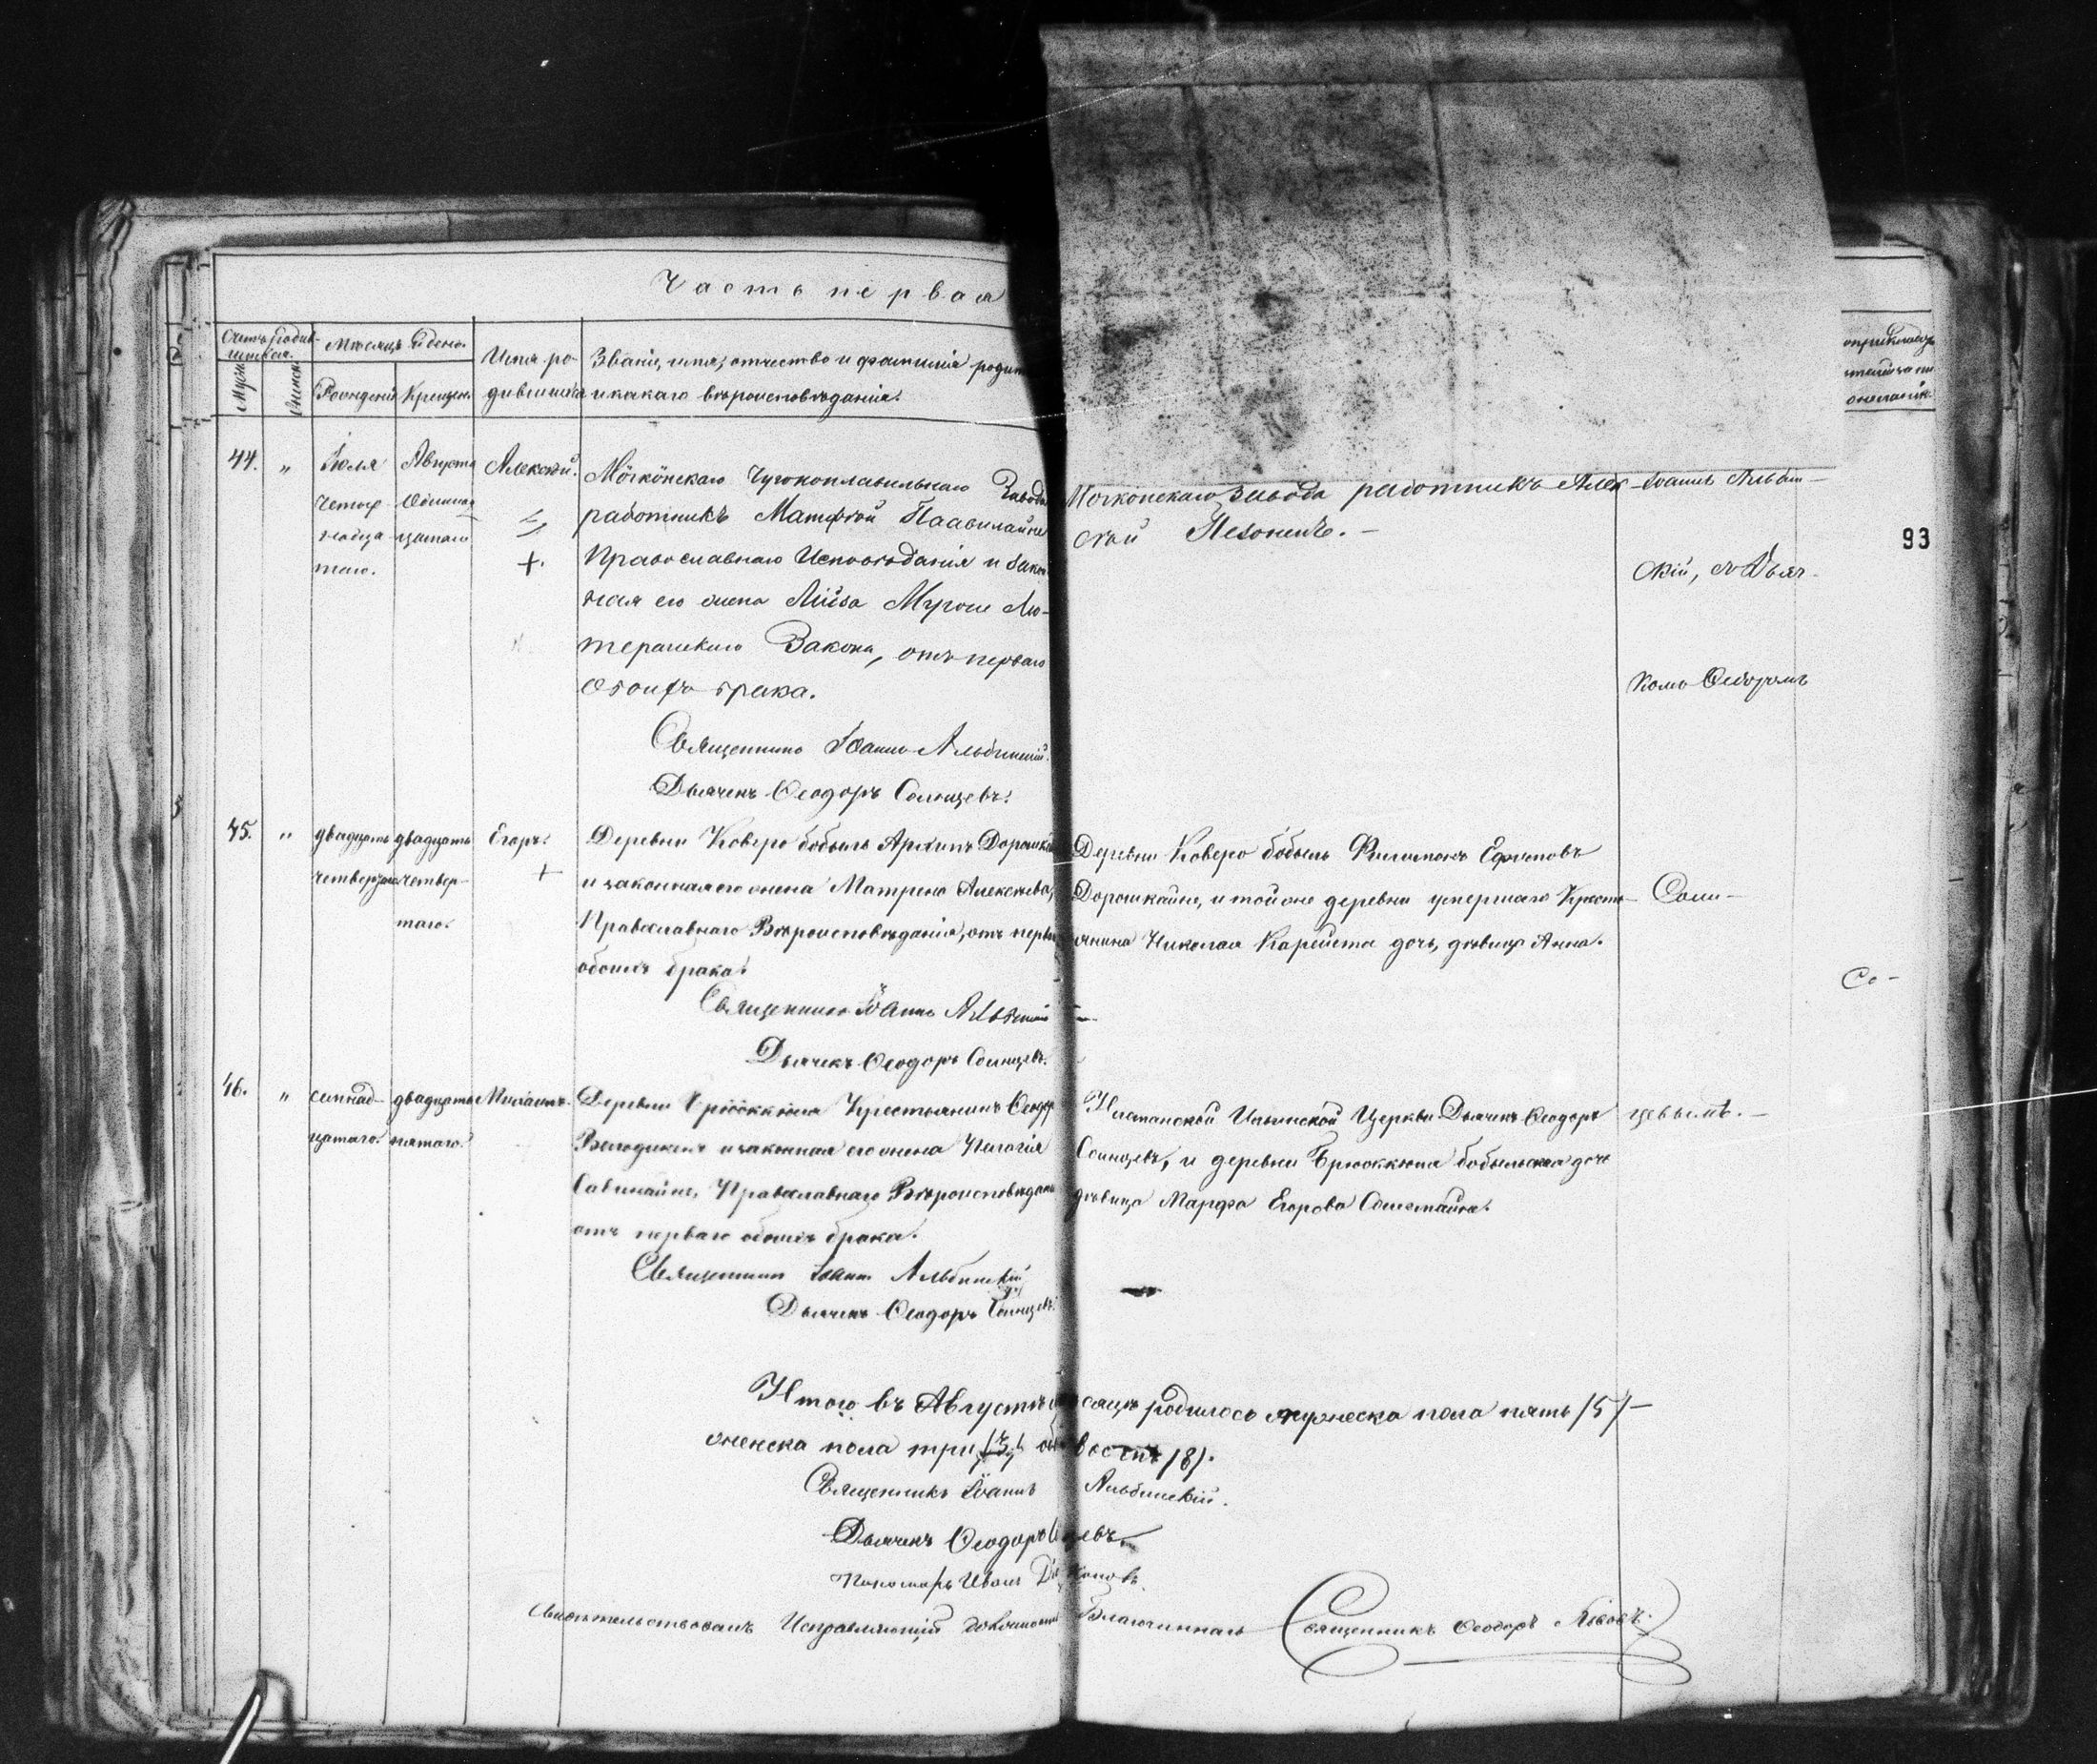 Часть первая
Счетъ родив-
шихся.
Мѣсяцъ и день.
Имя ро-
дившихся
Званіе, имя, отчество и фамилія родит
и какаго вѣроисповѣданія.
Муж
Женск
Рожденія
Крещен.
44.
"
Іюля
четыр
надца
таго.
Августа
Одиннад
цатаго
Алексѣй.
+.
Мöгкöнскаго Чугоноплавильнаго Завода
работникъ Матѳей Паавилайне
Православнаго Исповѣданія и закон
ная его жена Лійза Мурто Лю-
теранскаго Закона, отъ перваго
обоихъ брака.
Священникъ Іоаннъ Альбинскій.
Дьячекъ Ѳеодоръ Солнцевъ.
Могконскаго завода работникъ Алек-
сѣй
Іоаннъ Альбин-
скій, съ Дьяч-
комъ Ѳеодоромъ
93
45.
"
двадцать
четвертаго
двадцать
четвер-
таго.
Егоръ.
+
Деревни Коверо бобыль Архипъ Дорошк
и законная его жена Матрена Алексѣева,
Православнаго Вѣроисповѣданія, отъ перва
обоихъ брака.
Священникъ Іоаннъ Альбинскій
Дьячекъ Ѳеодоръ Солнцевъ.
Деревни Коверо бобыль Филимонъ Ефимовъ
Дорошкайне, и той же деревни умершаго Кресть-
янина Николая Карейста дочь, дѣвица Анна.
Солн-
Со-
46.
"
семнад-
цатаго.
двадцать
пятаго.
Михаилъ.
Деревни Крестьянинъ Ѳеодор
и законная его жена Пелагія
Савинайне, Православнаго Вѣроисповѣдан
отъ перваго обоихъ брака.
Священникъ Іоаннъ Альбинскій
Дьячекъ Ѳеодоръ Солнцевъ.
Ильинской Церкви Дьячекъ Ѳеодоръ
Солнцевъ, и деревни бобыльская дочь
дѣвица Марфа Егорова
цевымъ.-
Итого въ Августѣ мѣсяцѣ родилось мужеска пола пять /5/-
женска пола три /3/ обо восемь /8/.
Священникъ Іоаннъ Альбинскій.
Дьячекъ Ѳеодоръ Солнцевъ.
Пономарь Иванъ Дьяконовъ.
Свидѣтельствовалъ Исправляющій должность Благочиннаго Священникъ Ѳеодоръ Львовъ.